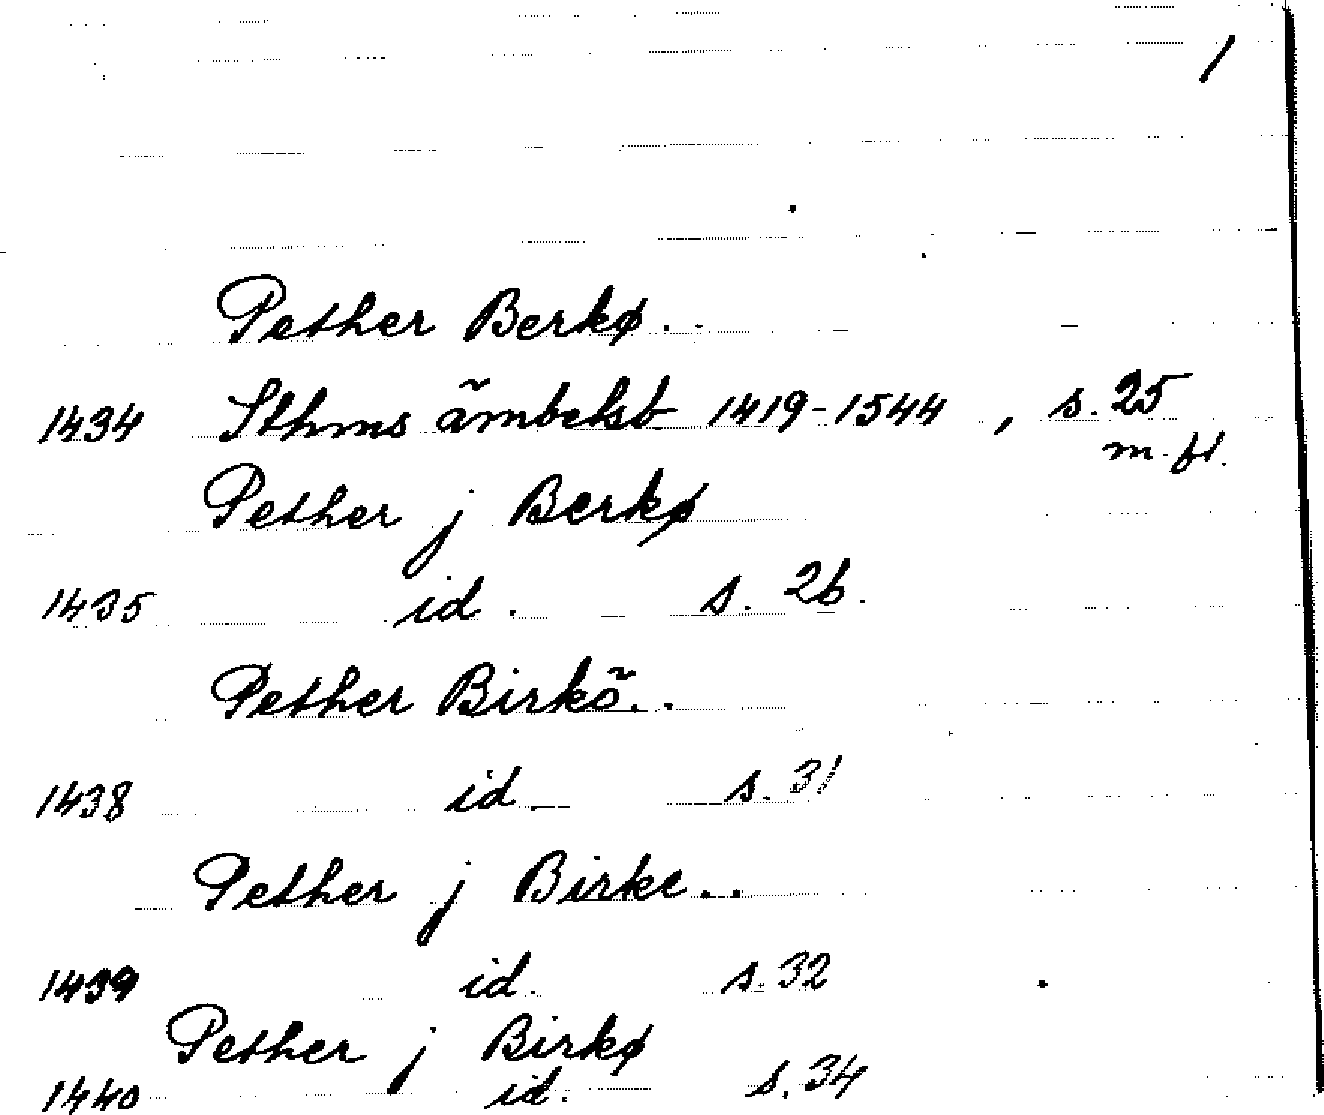 1
Pether Berkø..
1434 Sthms ämbetsb 1419-1544, s. 25
m. fl.
Pether j Berkø
1435 id. s. 26.
Pether Birkö..
1438 id. s. 31
Pether j Birke..
1439 id. s. 32
Pether j Birkø
1440 id. s. 34